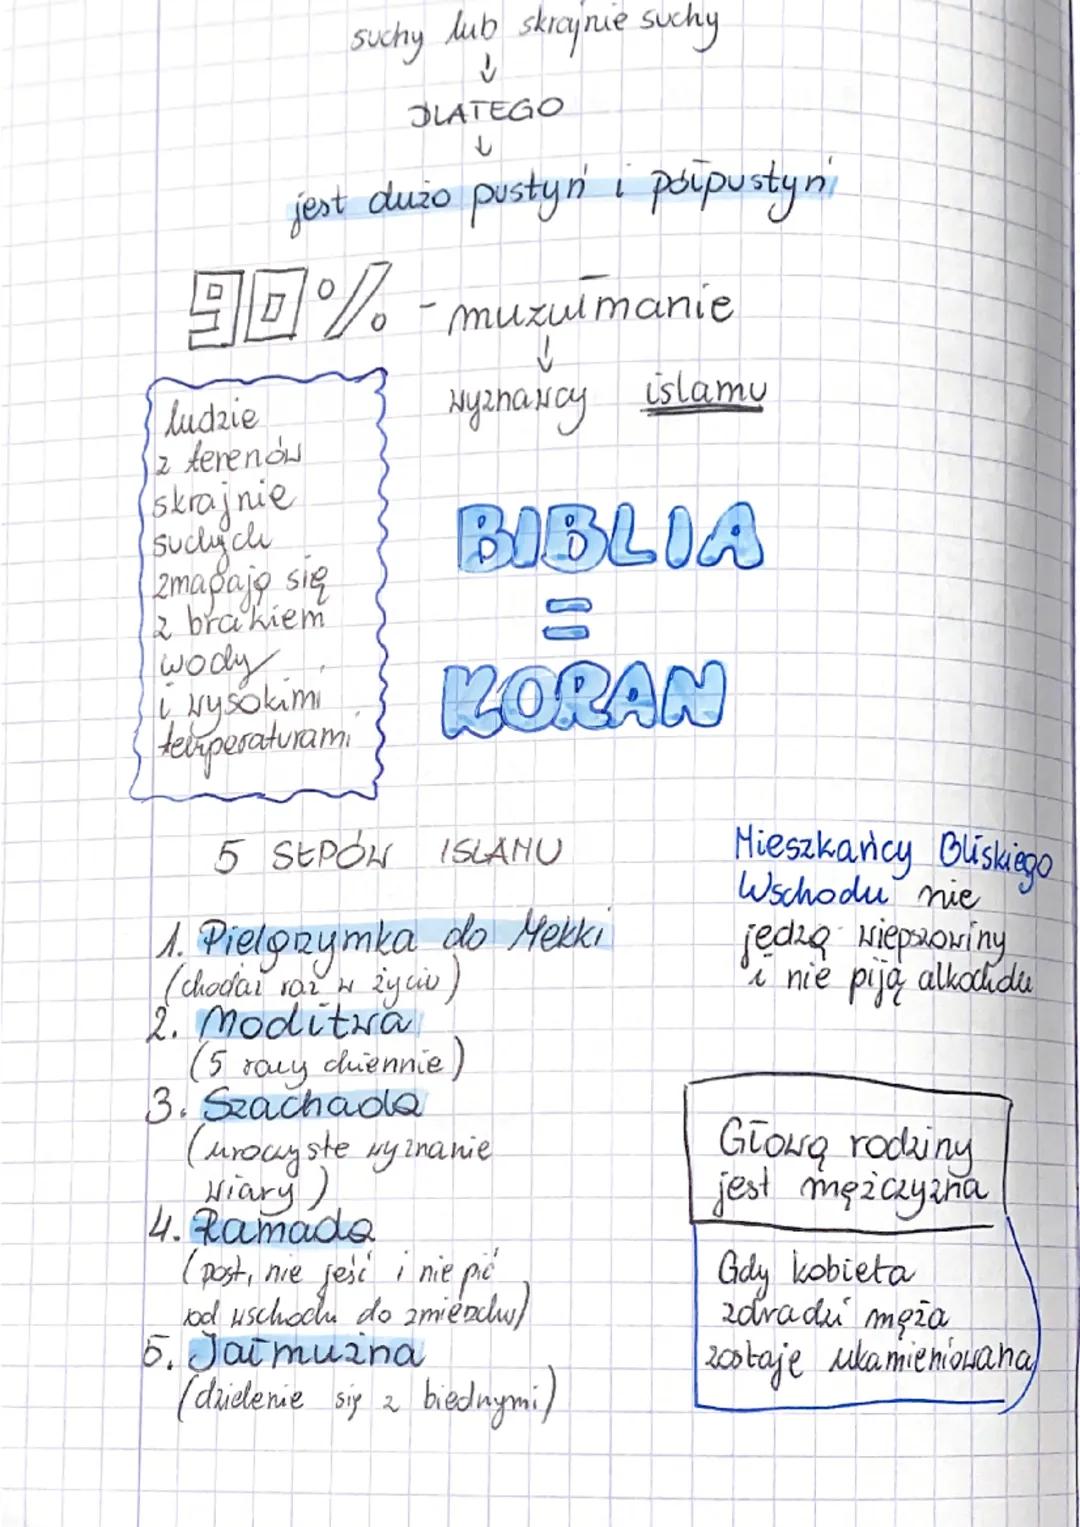 suchy lub skrajnie suchy
↓
DLATEGO
↓
jest dużo pustyń i półpustyń
90% - muzułmanie
↓
wyznawcy islamu
ludzie
z terenów
skrajnie
suchych
zmagają się
z brakiem
wody
i wysokimi
temperaturami
BIBLIA
=
KORAN
5 SŁPÓW ISLAMU
1. Pielgrzymka do Mekki
(chodaż raz w życiu)
2. Modlitwa
(5 razy dziennie)
3. Szachada
(uroczyste wyznanie
wiary)
4. Ramada
(post, nie jeść i nie pić
od wschodu do zmierzchu)
5. Jałmużna
(dzielenie się z biednymi)
Mieszkańcy Bliskiego
Wschodu nie
jedzą wieprzowiny
i nie piją alkoholu
Głową rodziny
jest mężczyzna
Gdy kobieta
zdradzi męża
zostaje ukamieniowana